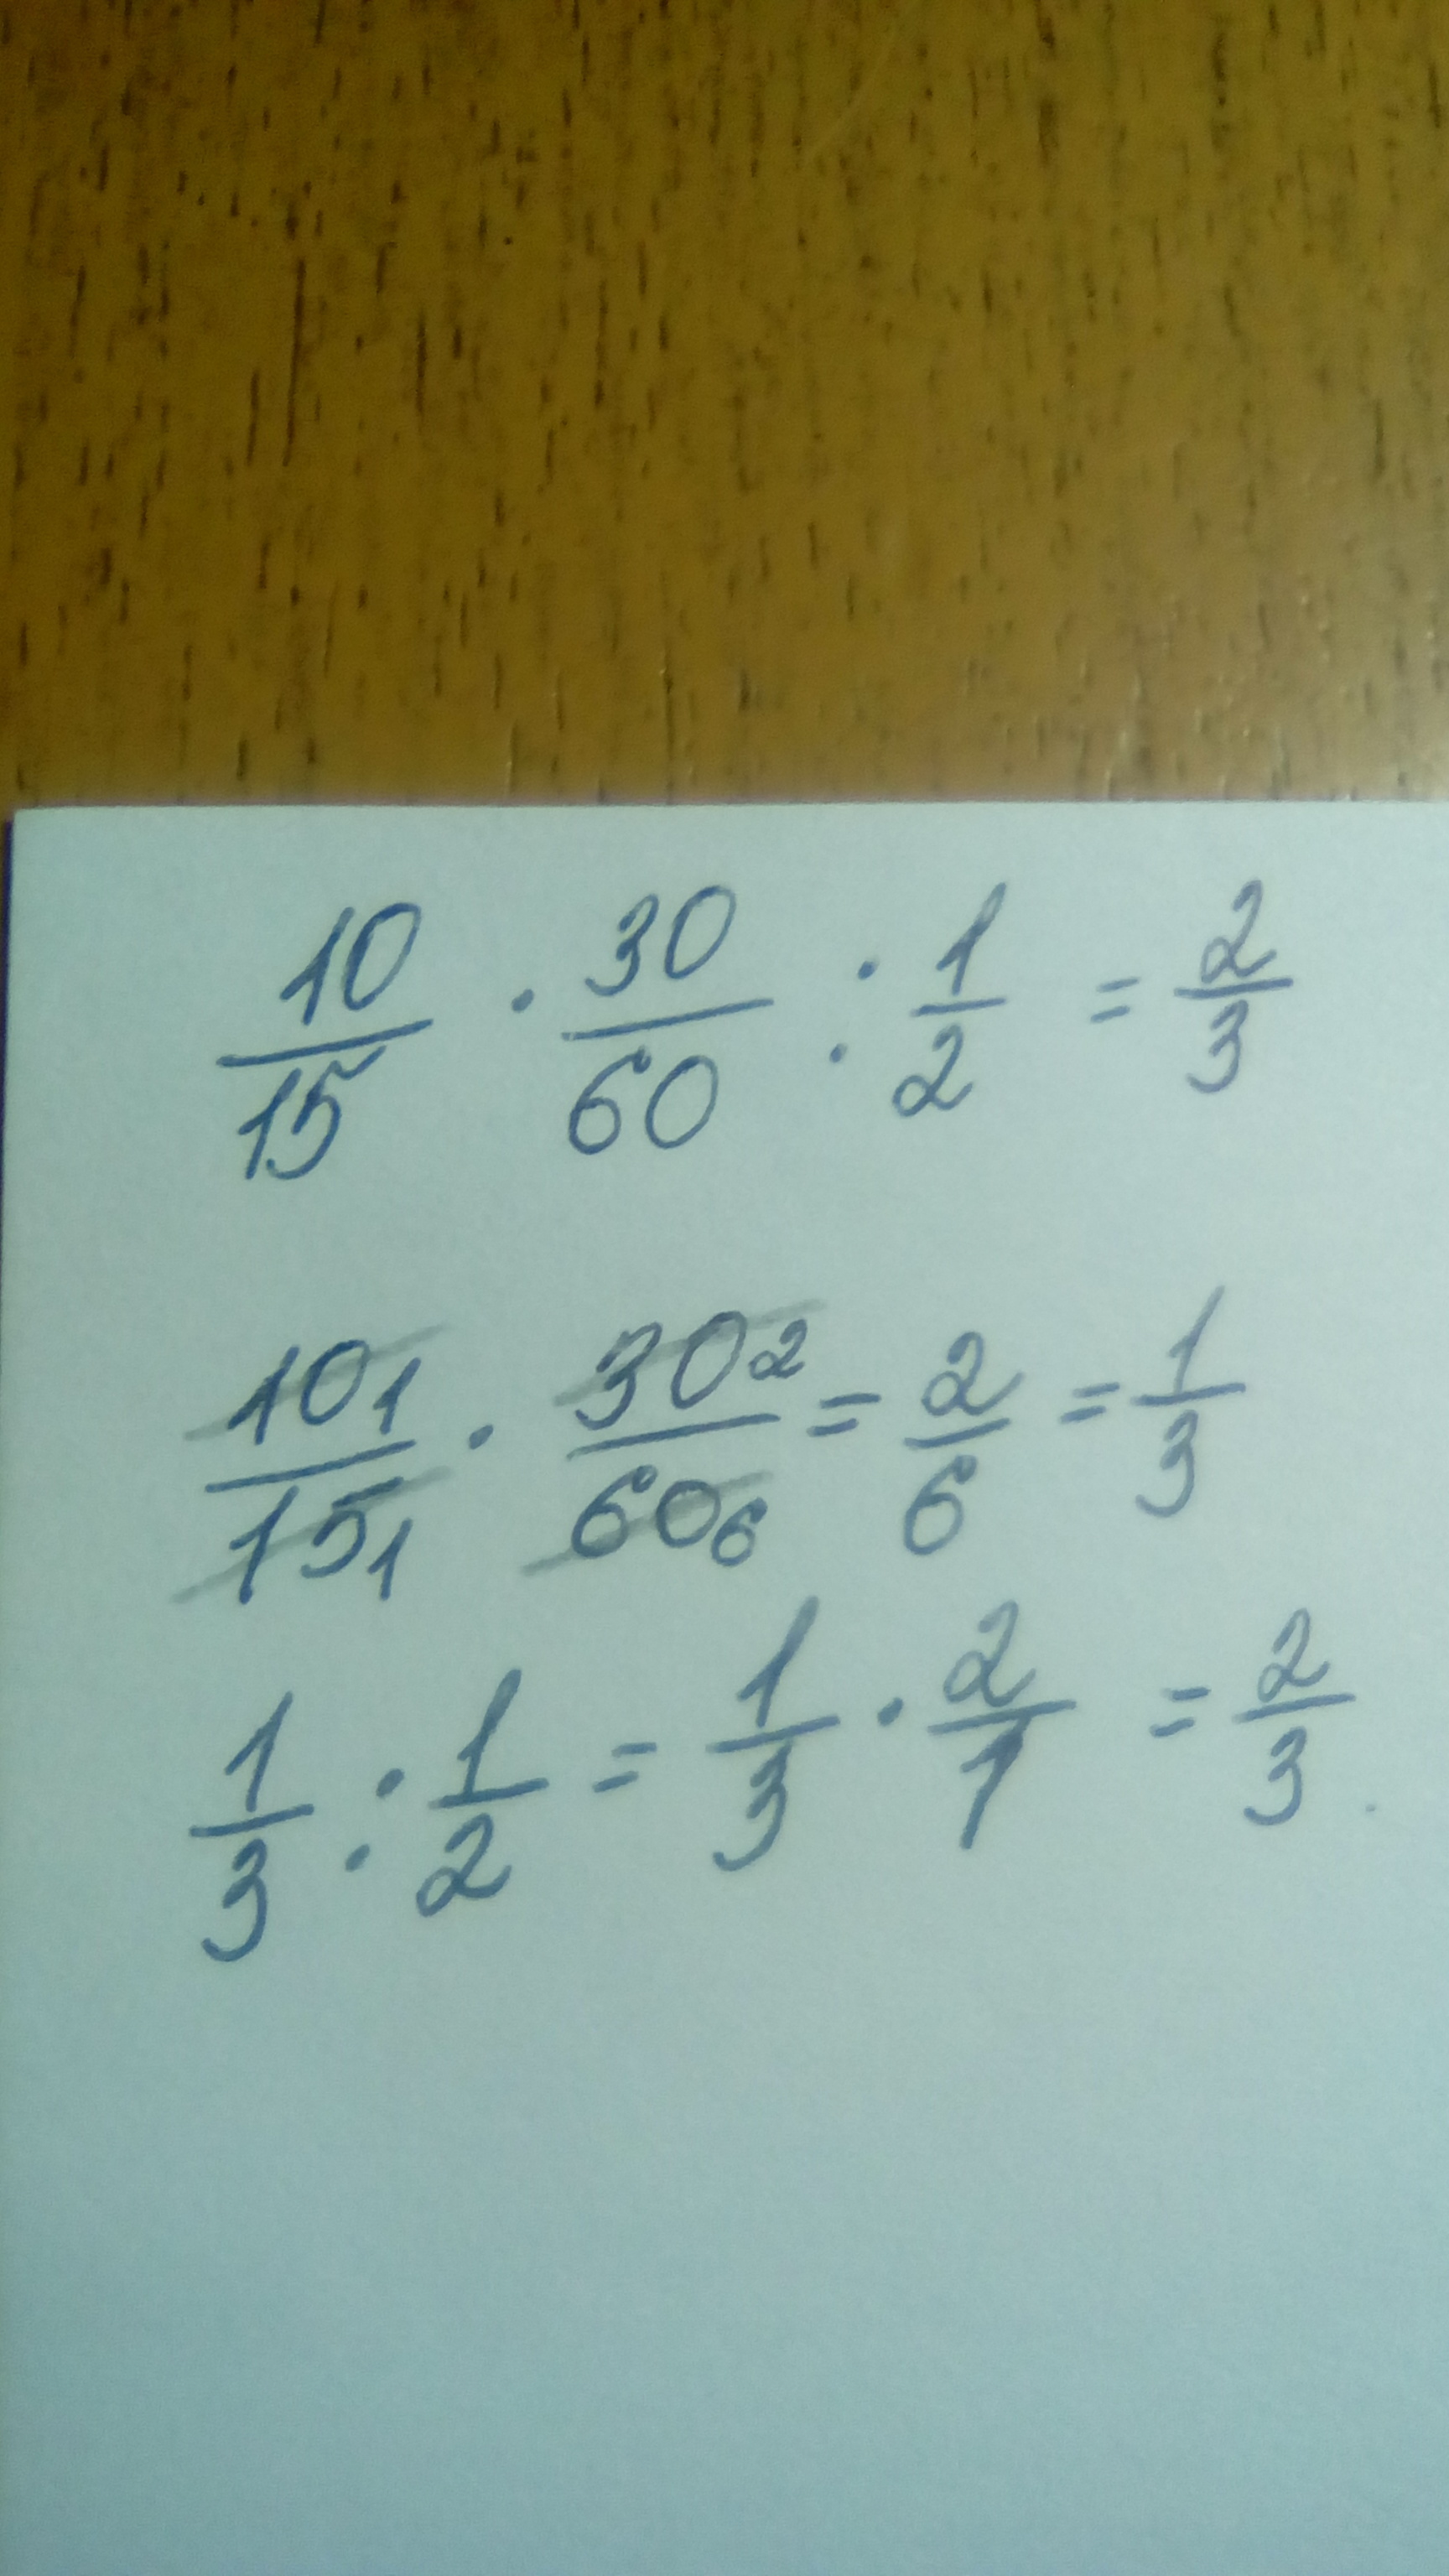 10/15 · 30/60 : 1/2 = 2/3
10 1/15 1 · 30 2/60 6 = 2/6 = 1/3
1/3 : 1/2 = 1/3 · 2/1 = 2/3